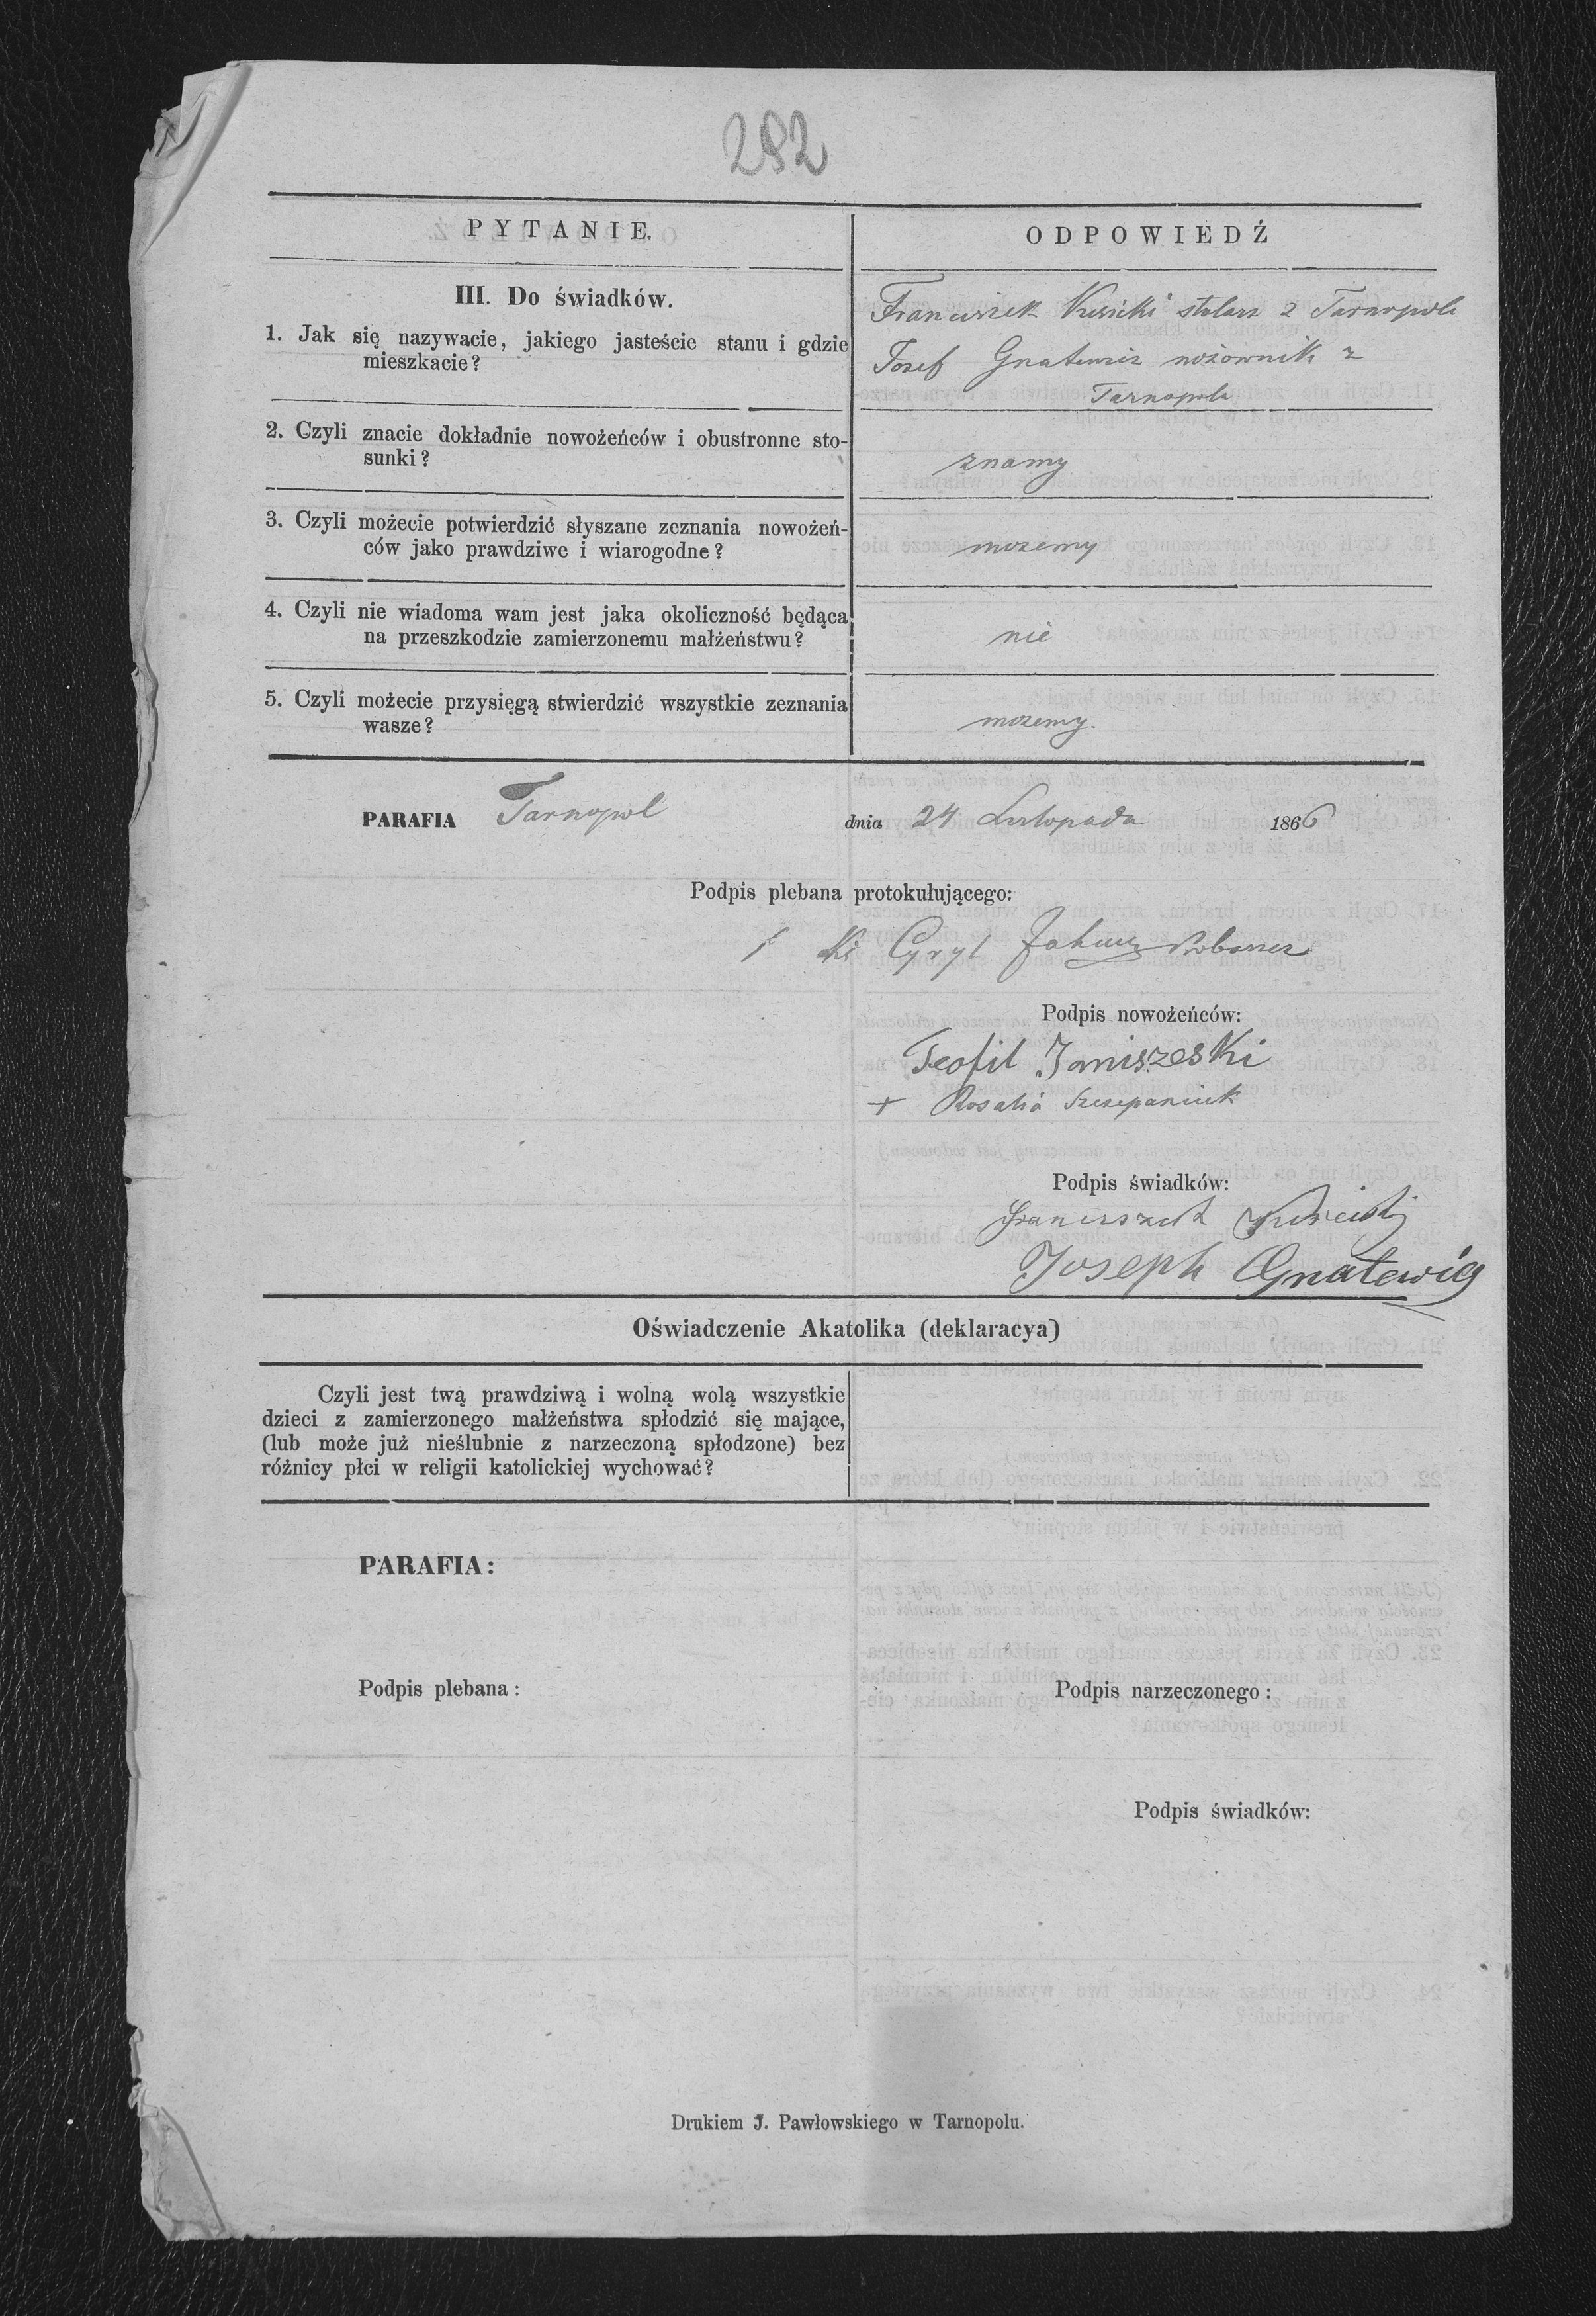 282
PYTANIE.
ODPOWIEDŹ
III. Do świadków.
1. Jak się nazywacie, jakiego jasteście stanu i gdzie
mieszkacie?
Franciszek stolarz z Tarnopola
Josef Gnatewicz nożownik z
Tarnopola
2. Czyli znacie dokładnie nowożeńców i obustronne sto-
sunki?
znamy
3. Czyli możecie potwierdzić słyszane zeznania nowożeń-
ców jako prawdziwe i wiarogodne?
mozemy
4. Czyli nie wiadoma wam jest jaka okoliczność będąca
na przeszkodzie zamierzonemu małżeństwu?
nie
5. Czyli możecie przysięgą stwierdzić wszystkie zeznania
wasze?
mozemy.
PARAFIA Tarnopol dnia 24 Listopada 1866
Podpis plebana protokułującego:
Cyryl
Podpis nowożeńców:
Teofil Janiszeski
+ Rosalia Szczepaniuk
Podpis świadków:
Joseph Gnatewicz
Oświadczenie Akatolika (deklaracya)
Czyli jest twą prawdziwą i wolną wolą wszystkie
dzieci z zamierzonego małżeństwa spłodzić się mające,
(lub może już nieślubnie z narzeczoną spłodzone) bez
różnicy płci w religii katolickiej wychować?
PARAFIA:
Podpis plebana:
Podpis narzeczonego:
Podpis świadków:
Drukiem J. Pawłowskiego w Tarnopolu.